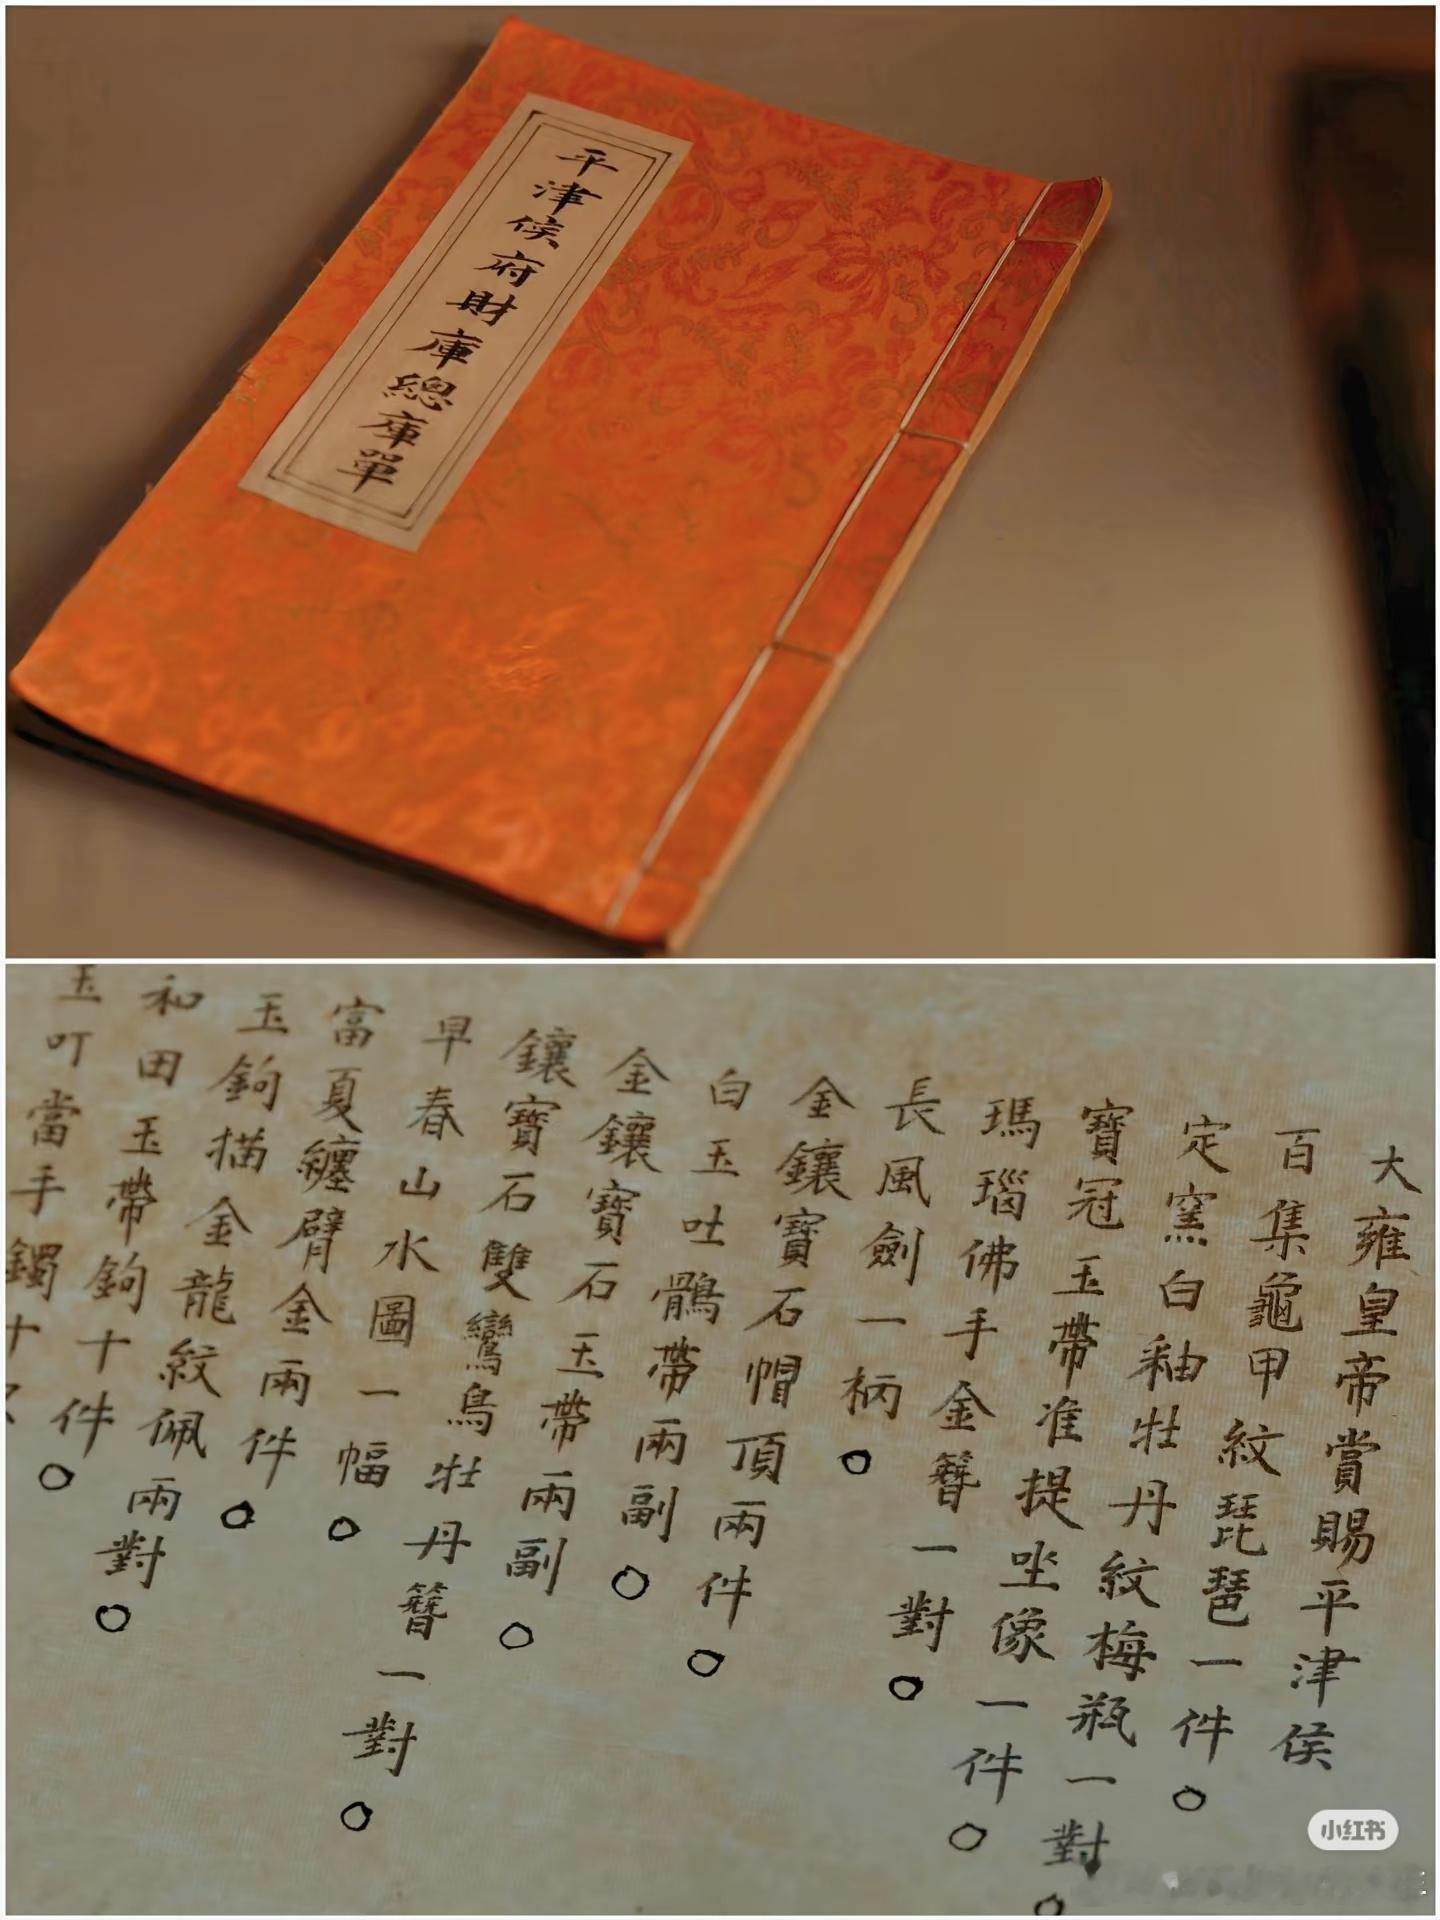 平津侯府財庫總庫單
大雍皇帝賞賜平津侯
百集龜甲紋琵琶一件。
定窯白釉牡丹紋梅瓶一對。
寶冠玉帶准提坐像一件。
瑪瑙佛手金簪一對。
長風劍一柄。
金鑲寶石帽頂兩件。
白玉吐鶻帶兩副。
金鑲寶石玉帶兩副。
鑲寶石雙鸞鳥牡丹簪一對。
早春山水圖一幅。
富夏纏臂金兩件。
玉鉤描金龍紋佩兩對。
和田玉帶鉤十件。
玉叮當手鐲十
小红书